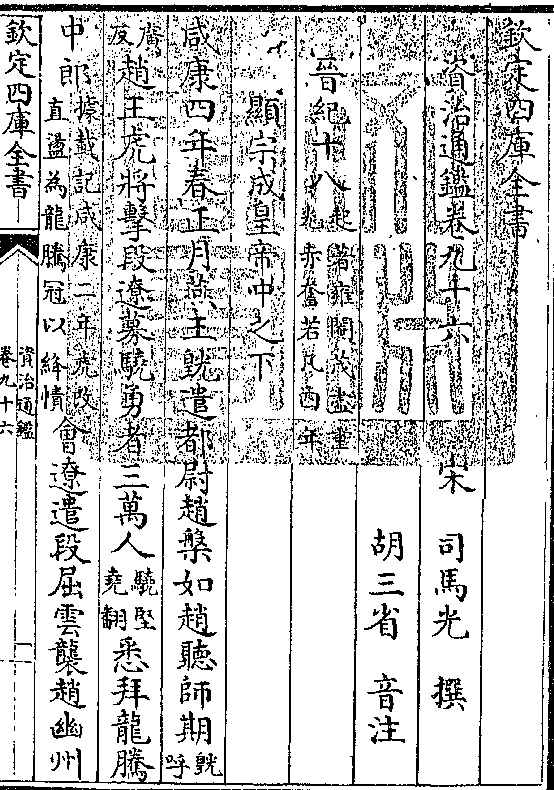 欽定四庫全書
資治通鑑卷九十六
宋 司馬光 撰
胡三省 音注
晉紀十八起著雍閹茂盡重
光赤奮若凡四年
顯宗成皇帝中之下
咸康四年春正月燕王皝遣都尉趙槃如趙聽師期皝呼
廣反
趙王虎將擊段遼募驍勇者三萬人驍堅
堯翻
悉拜龍騰
中郎據載記咸康二年虎改
直盪為龍騰冠以絳幘
會遼遣段屈雲襲趙幽州
欽定四庫全書
資治通鑑
卷九十六
一